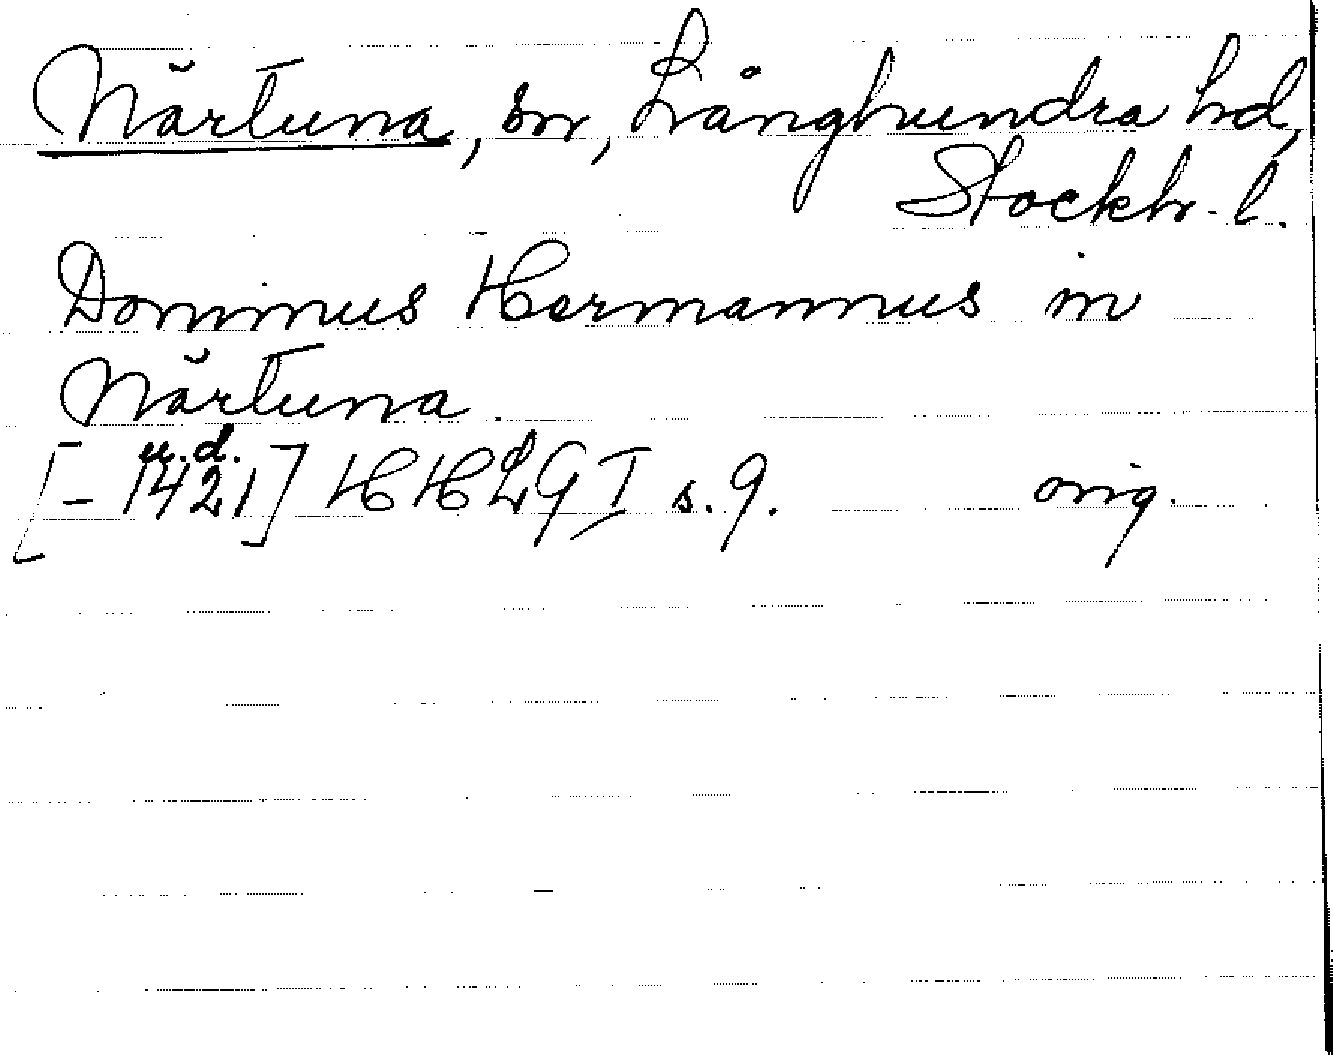 Närtuna, sn, Långhundra hd,
Stockh. l.
Dominus Hermannus in
Närtuna.
u.d.
[- 1421] HHLG I s. 9. orig.